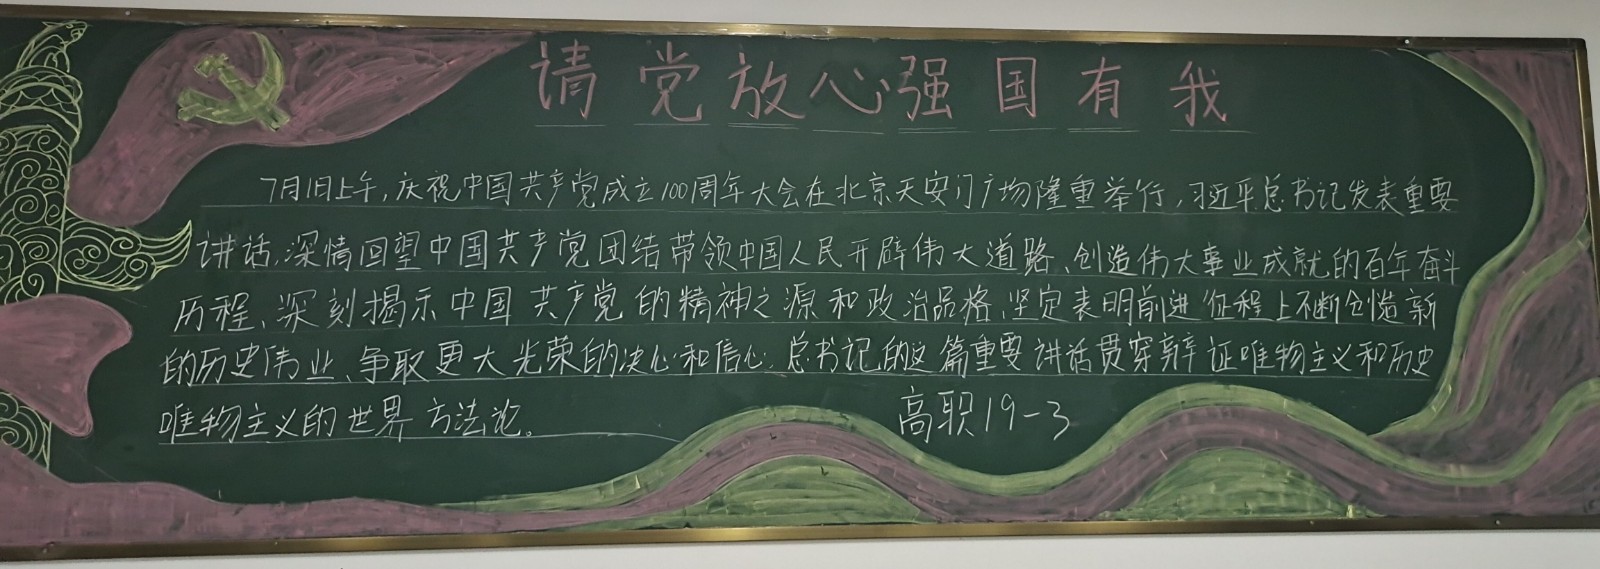 请党放心强国有我
7月1日上午,庆祝中国共产党成立100周年大会在北京天安门广场隆重举行,习近平总书记发表重要
讲话,深情回望中国共产党团结带领中国人民开辟伟大道路、创造伟大事业成就的百年奋斗
历程、深刻揭示中国共产党的精神之源和政治品格、坚定表明前进征程上不断创造新
的历史伟业、争取更大光荣的决心和信心。总书记的这篇重要讲话贯穿辩证唯物主义和历史
唯物主义的世界方法论。
高职19-3